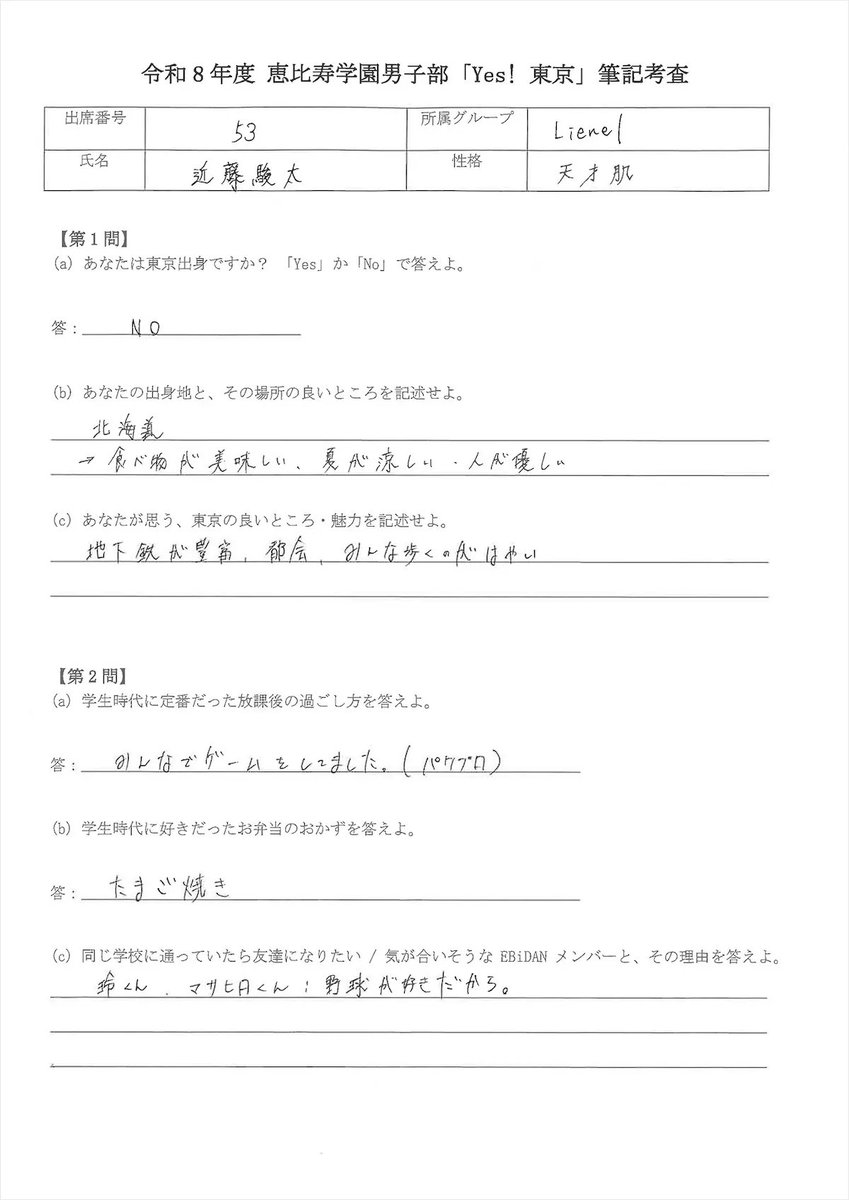 令和8年度 恵比寿学園男子部「Yes! 東京」筆記考査
出席番号 53 所属グループ Lienel
氏名 近藤駿太 性格 天才肌
【第1問】
(a) あなたは東京出身ですか? 「Yes」か「No」で答えよ。
答: NO
(b) あなたの出身地と、その場所の良いところを記述せよ。
北海道
→ 食べ物が美味しい、夏が涼しい・人が優しい
(c) あなたが思う、東京の良いところ・魅力を記述せよ。
地下鉄が豊富、都会、みんな歩くのがはやい
【第2問】
(a) 学生時代に定番だった放課後の過ごし方を答えよ。
答: みんなでゲームをしてました。(パワプロ)
(b) 学生時代に好きだったお弁当のおかずを答えよ。
答: たまご焼き
(c) 同じ学校に通っていたら友達になりたい / 気が合いそうな EBiDAN メンバーと、その理由を答えよ。
玲くん、マサヒロくん:野球が好きだから。